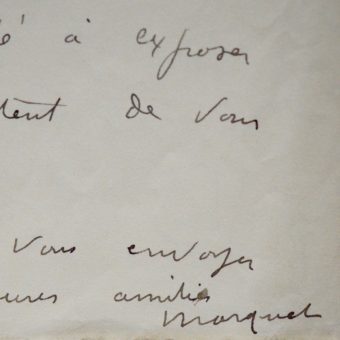 é à exposer
tent de vous
vous envoyer
eures amitiés
Marquet